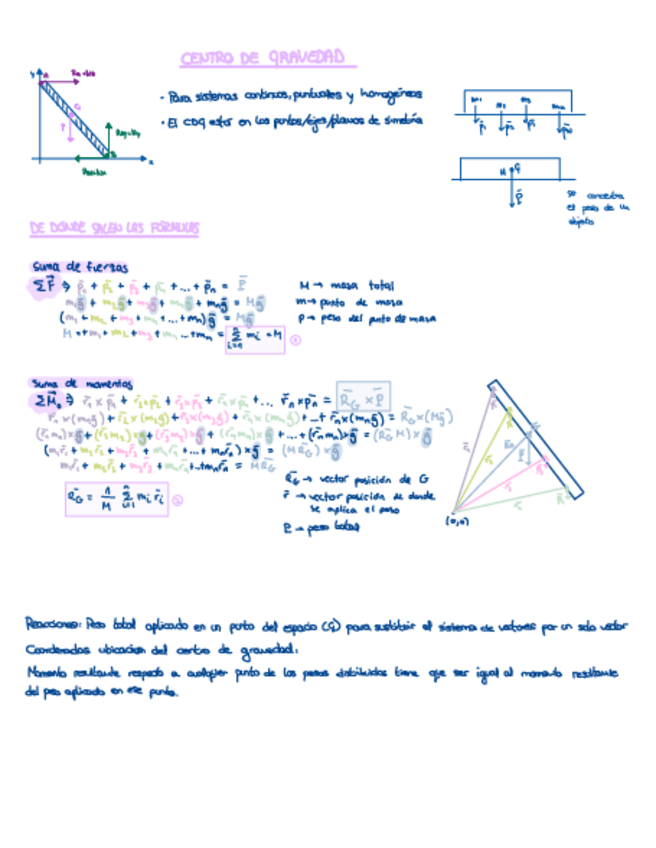 CENTRO DE GRAVEDAD
y
A
G
P
B
x
· Para sistemas continuos, puntuales y homogéneos
· El CDG estar en los puntos/ejes/planos de simetría
m1 m2 m3 mn
p̄1 p̄2 p̄3 p̄n
M G
P̄
se concentra
el peso de un
objeto
DE DÓNDE SALEN LAS FÓRMULAS
Suma de fuerzas
ΣF̄ ⇒ p̄1 + p̄2 + p̄3 + p̄4 + ... + p̄n = P̄
m1ḡ + m2ḡ + m3ḡ + m4ḡ + mnḡ = Mḡ
(m1 + m2 + m3 + m4 + ... + mn) ḡ = Mḡ
M = m1 + m2 + m3 + m4 ... + mn = Σ mi = M ①
M → masa total
m → punto de masa
p → peso del punto de masa
Suma de momentos
ΣM̄o ⇒ r̄1 x p̄1 + r̄2 x p̄2 + r̄3 x p̄3 + r̄4 x p̄4 + ... r̄n x p̄n = R̄G x P̄
r̄1 x (m1ḡ) + r̄2 x (m2ḡ) + r̄3 x (m3ḡ) + r̄4 x (m4ḡ) + ... + r̄n x (mnḡ) = R̄G x (Mḡ)
(r̄1m1) x ḡ + (r̄2m2) x ḡ + (r̄3m3) x ḡ + (r̄4m4) x ḡ + ... + (r̄nmn) x ḡ = (R̄G M) x ḡ
(m1r̄1 + m2r̄2 + m3r̄3 + m4r̄4 ... + mnr̄n) x ḡ = (MR̄G) x ḡ
m1r̄1 + m2r̄2 + m3r̄3 + m4r̄4 ... + mnr̄n = MR̄G
R̄G = 1/M Σ mi r̄i ②
R̄G → vector posición de G
r̄ → vector posición de donde
se aplica el peso
P → peso total
(0,0)
Reacciones: Peso total aplicado en un punto del espacio (G) para sustituir el sistema de vectores por un solo vector
Coordenadas ubicación del centro de gravedad:
Momento resultante respecto a cualquier punto de los pesos distribuidos tiene que ser igual al momento resultante
del peso aplicado en ese punto.